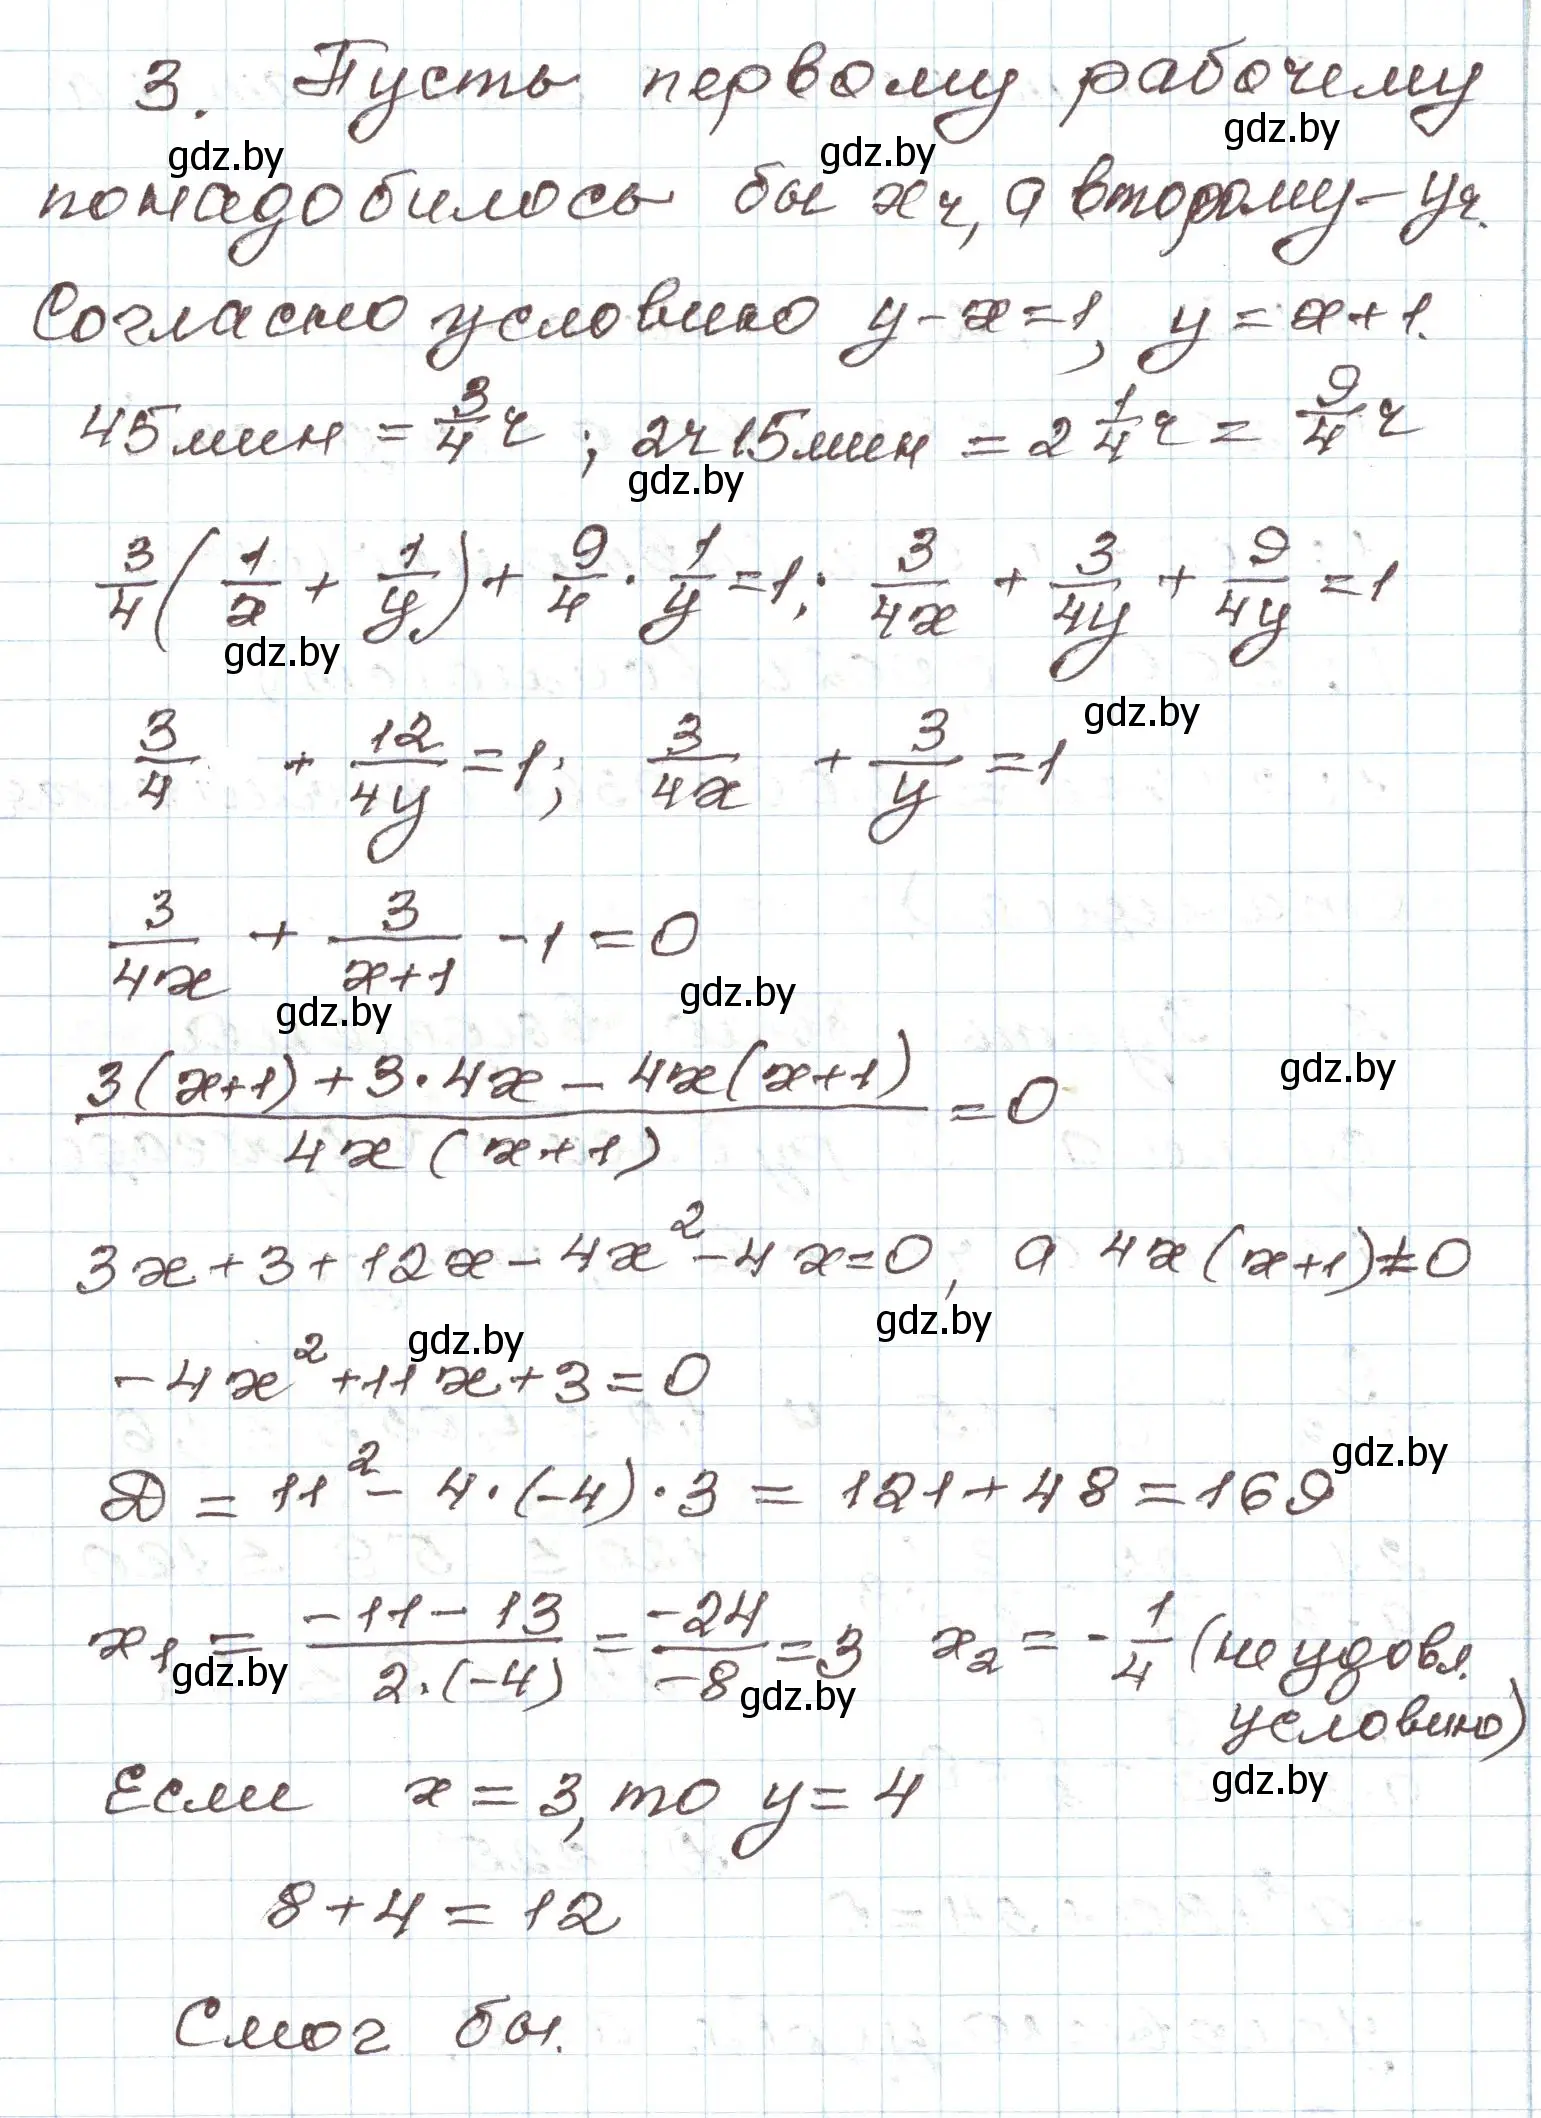 3. Пусть первому рабочему
gdz.by gdz.by gdz.by
понадобилось бы x ч, а второму – y ч.
Согласно условию y – x = 1, y = x + 1.
45 мин = 3/4 ч ; 2 ч 15 мин = 2 1/4 ч = 9/4 ч
gdz.by
3/4 (1/x + 1/y) + 9/4 · 1/y = 1; 3/4x + 3/4y + 9/4y = 1
gdz.by
gdz.by
3/4 + 12/4y = 1; 3/4x + 3/y = 1
3/4x + 3/(x+1) – 1 = 0
gdz.by gdz.by
(3(x+1) + 3·4x – 4x(x+1))/(4x(x+1)) = 0
gdz.by
3x + 3 + 12x – 4x² – 4x = 0, а 4x(x+1) ≠ 0
gdz.by gdz.by
–4x² + 11x + 3 = 0
gdz.by
D = 11² – 4·(–4)·3 = 121 + 48 = 169
x₁ = (–11 – 13)/(2·(–4)) = –24/–8 = 3 x₂ = –1/4 (не удовл.
gdz.by gdz.by
условию)
gdz.by
Если x = 3, то y = 4
8 + 4 = 12
Смог бы.